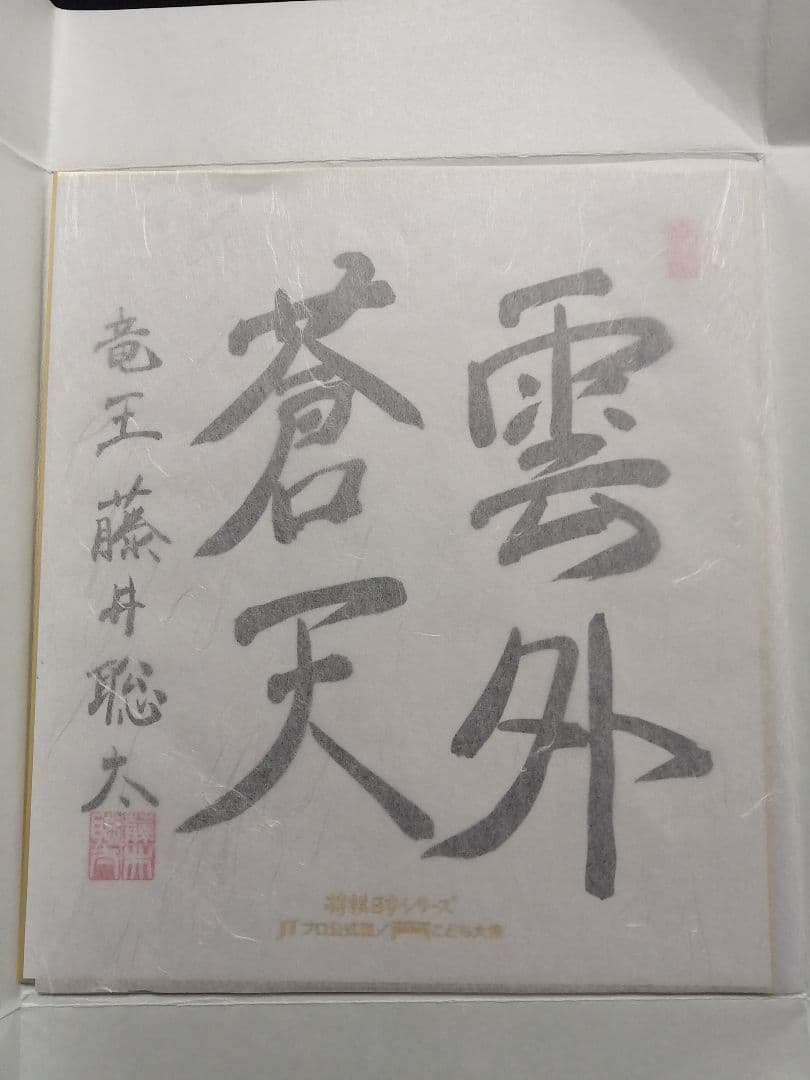 雲外
蒼天
竜王 藤井聡太
将棋日本シリーズ
JTプロ公式戦/こども大会